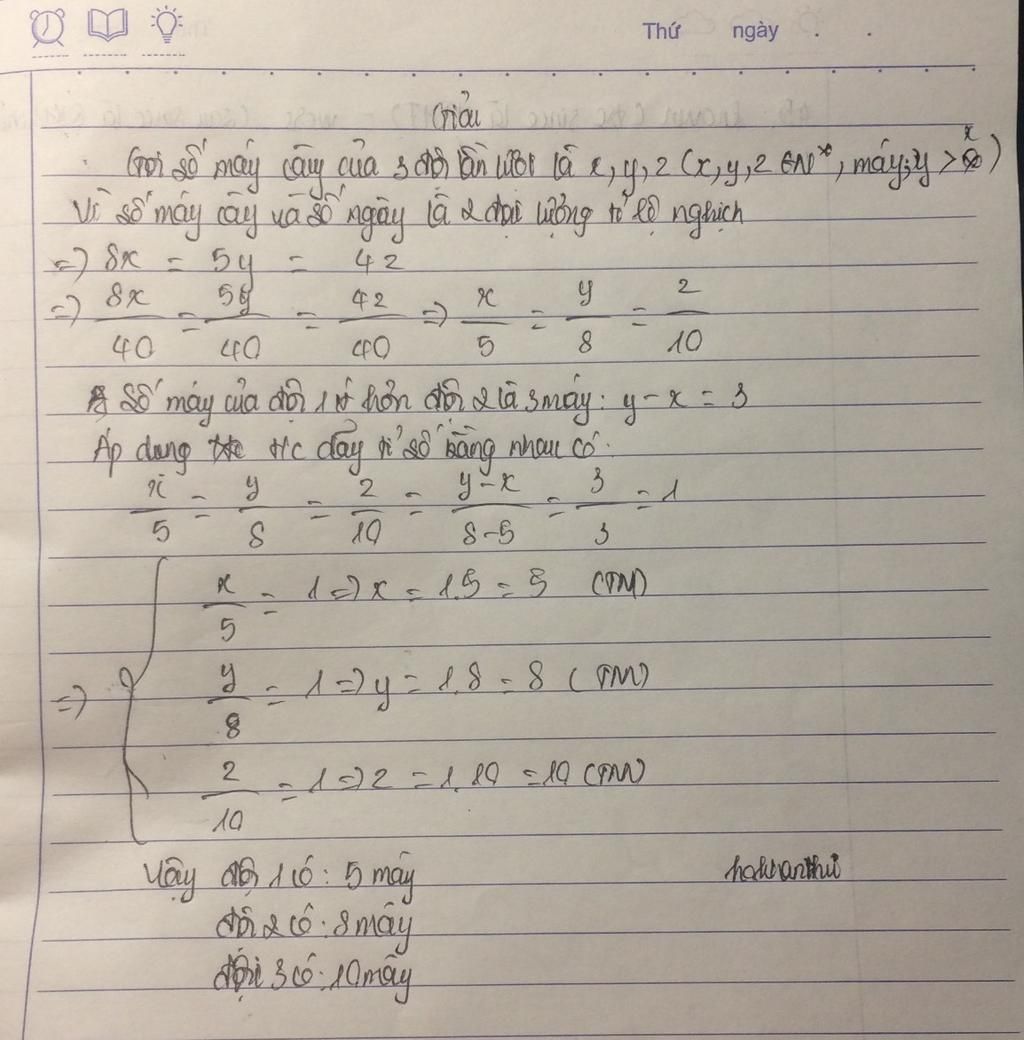 Thứ ngày . .
Giải
Gọi số máy cày của 3 đội lần lượt là x, y, z (x, y, z ∈ N*, máy; y > x)
Vì số máy cày và số ngày là 2 đại lượng tỉ lệ nghịch
=> 8x = 5y = 4z
=> 8x/40 = 5y/40 = 4z/40 => x/5 = y/8 = z/10
Số máy của đội 1 ít hơn đội 2 là 3 máy: y - x = 3
Áp dụng t/c dãy tỉ số bằng nhau có:
x/5 = y/8 = z/10 = y-x/8-5 = 3/3 = 1
x/5 = 1 => x = 1.5 = 5 (TM)
=> y/8 = 1 => y = 1.8 = 8 (TM)
z/10 = 1 => z = 1.10 = 10 (TM)
Vậy đội 1 có: 5 máy
đội 2 có: 8 máy
đội 3 có: 10 máy